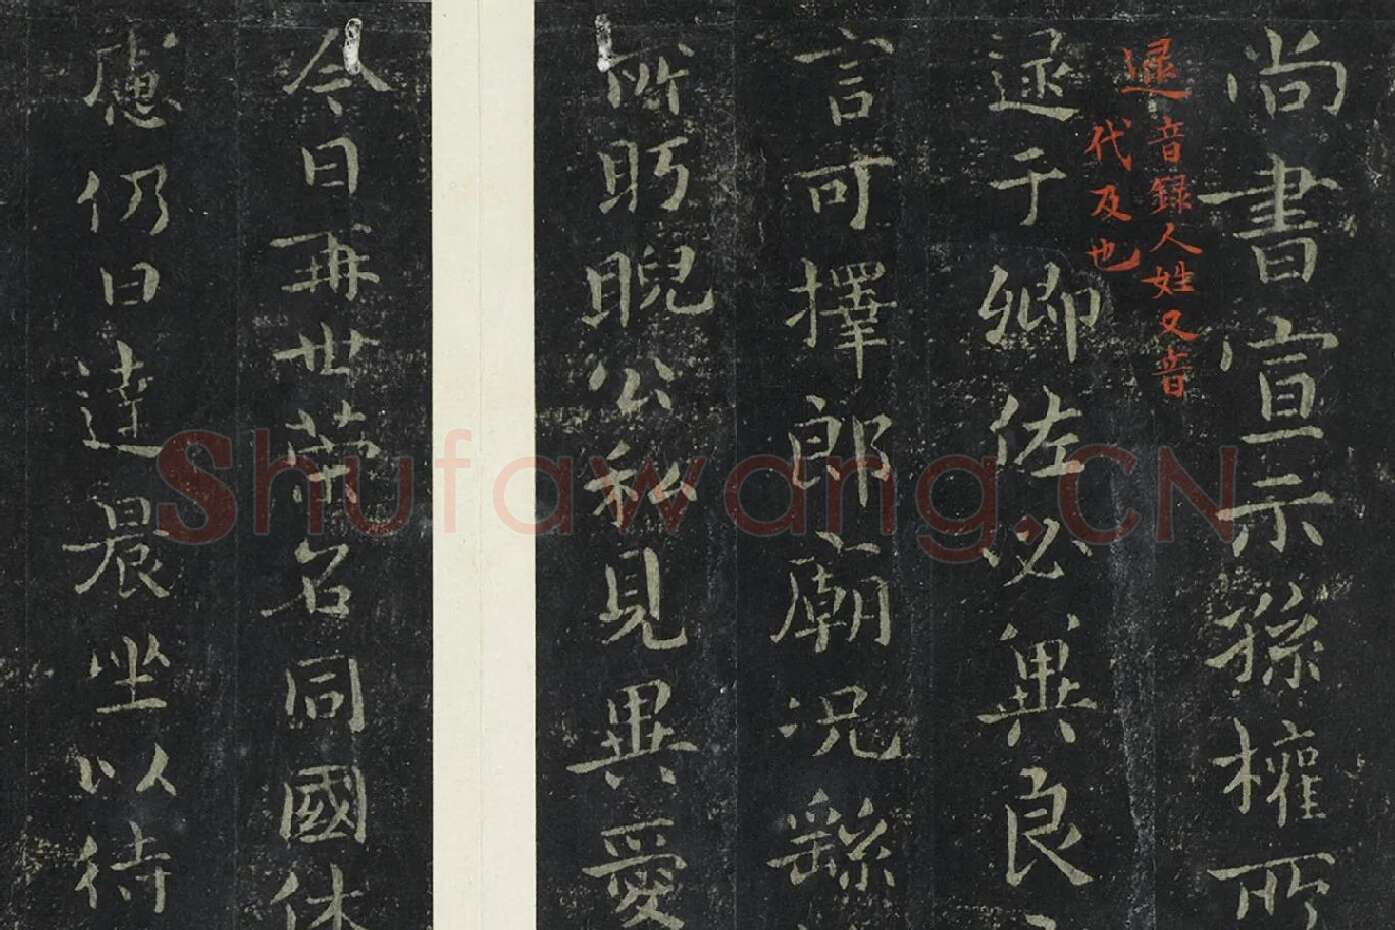 尚書宣示孫權所
逯音錄人姓又音
代及也
逯于卿佐必冀良
言可擇郎廟况繇
所盱睨公私見異愛
今日再世榮名同國休
慮仍日達晨坐以待
Shufawang.CN